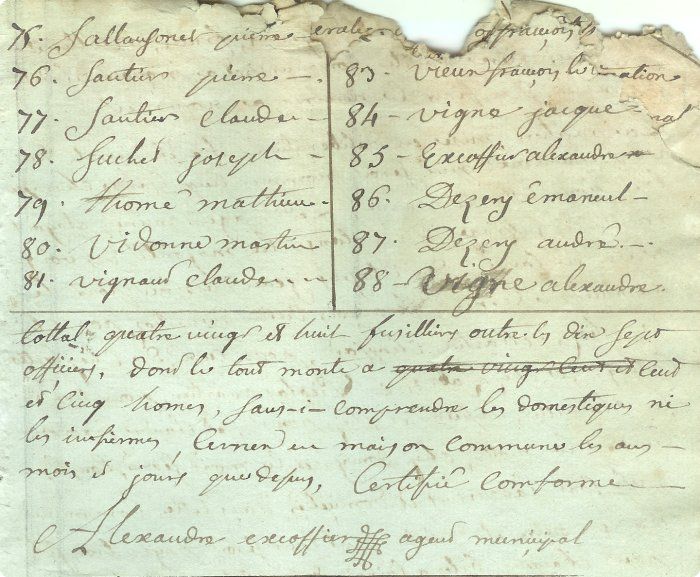 75. Sallansonet pierre
76. Sautier pierre -
77. Sautier claude -
78. Suchet joseph -
79. thomé mathieu -
80. vidonne martin
81. vignaud claude - -
83 - vieux françois
84 - vigne jacque -
85 - Excoffier alexandre
86. Dezery émaneul -
87. Dezery andré. -.
88 - vigne alexandre.
tottal quatre vingt et huit fusilliers outre les dix sept
officiers, dont le tout monte a quatre vingt cent et cent
et cinq homes, sans-i- comprendre les domestiques ni
les infirmes, cerner en maison commune les ans -
mois et jours que depus, certifié conforme
Alexandre excoffier agent municipal